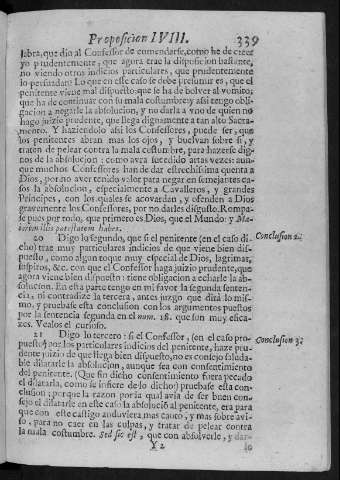 Proposicion LVIII. 339
labra, que dio al Confessor de enmendarse, como he de creer
yo prudentemente, que agora trae la disposicion bastante,
no viendo otros indicios particulares, que prudentemente
lo persuadan? Lo que en este caso se debe presumir es, que el
penitente viene mal dispuesto: que se ha de bolver al vomito;
que ha de continuar con su mala costumbre; y assi tengo obli-
gacion a negarle la absolucion, y no darla a vno de quien no
hago juizio prudente, que llega dignamente a tan alto Sacra-
mento. Y haziendolo assi los Confessores, puede ser, que
los penitentes abran mas los ojos, y buelvan sobre si, y
traten de pelear contra la mala costumbre, para hazerse dig-
nos de la absolucion: como avrà sucedido artas vezes: aun-
que muchos Confessores han de dar estrechissima quenta a
Dios, por no aver tenido valor para negar en semejantes ca-
sos la absolucion, especialmente a Cavalleros, y grandes
Principes, con los quales se acovardan, y ofenden a Dios
gravemente los Confessores, por no darles disgusto. Rompa-
se pues por todo, que primero es Dios, que el Mundo: y Ma-
iorem illis potestatem habet.
20 Digo lo segundo, que si el penitente (en el caso di-
cho) trae muy particulares indicios de que viene bien dis-
puesto, como algun toque muy especial de Dios, lagrimas,
suspiros, &c. con que el Confessor haga juizio prudente, que
agora viene bien dispuesto: tiene obligacion a echarle la ab-
solucion. En esta parte tengo en mi favor la segunda senten-
cia, ni contradize la tercera, antes juzgo que dirà lo mis-
mo, y pruebase esta conclusion con los argumentos puestos
por la sentencia segunda en el num. 18. que son muy efica-
zes. Vealos el curioso.
Conclusion 2.
21 Digo lo tercero: si el Confessor, (en el caso pro-
puesto) por los particulares indicios del penitente, haze pru-
dente juizio de que llega bien dispuesto, no es consejo saluda-
ble dilatarle la absolucion, aunque sea con consentimiento
del penitente. (Que sin dicho consentimiento fuera pecado
el dilatarla, como se infiere de lo dicho) pruebase esta con-
clusion; porque la razon por la qual avia de ser buen con-
sejo el dilatarle en este caso la absolucion al penitente, era para
que con este castigo anduviera mas cauto, y mas sobre avi-
so, para no caer en las culpas, y tratar de pelear contra
la mala costumbre. Sed sic est, que con absolverle, y dar-
Conclusion 3.
Y 2 lo